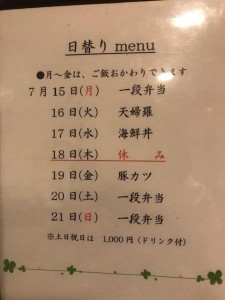 日替り menu
●月～金は、ご飯おかわりできます
7月15日(月) 一段弁当
16日(火) 天婦羅
17日(水) 海鮮丼
18日(木) 休み
19日(金) 豚カツ
20日(土) 一段弁当
21日(日) 一段弁当
※土日祝日は 1,000円(ドリンク付)